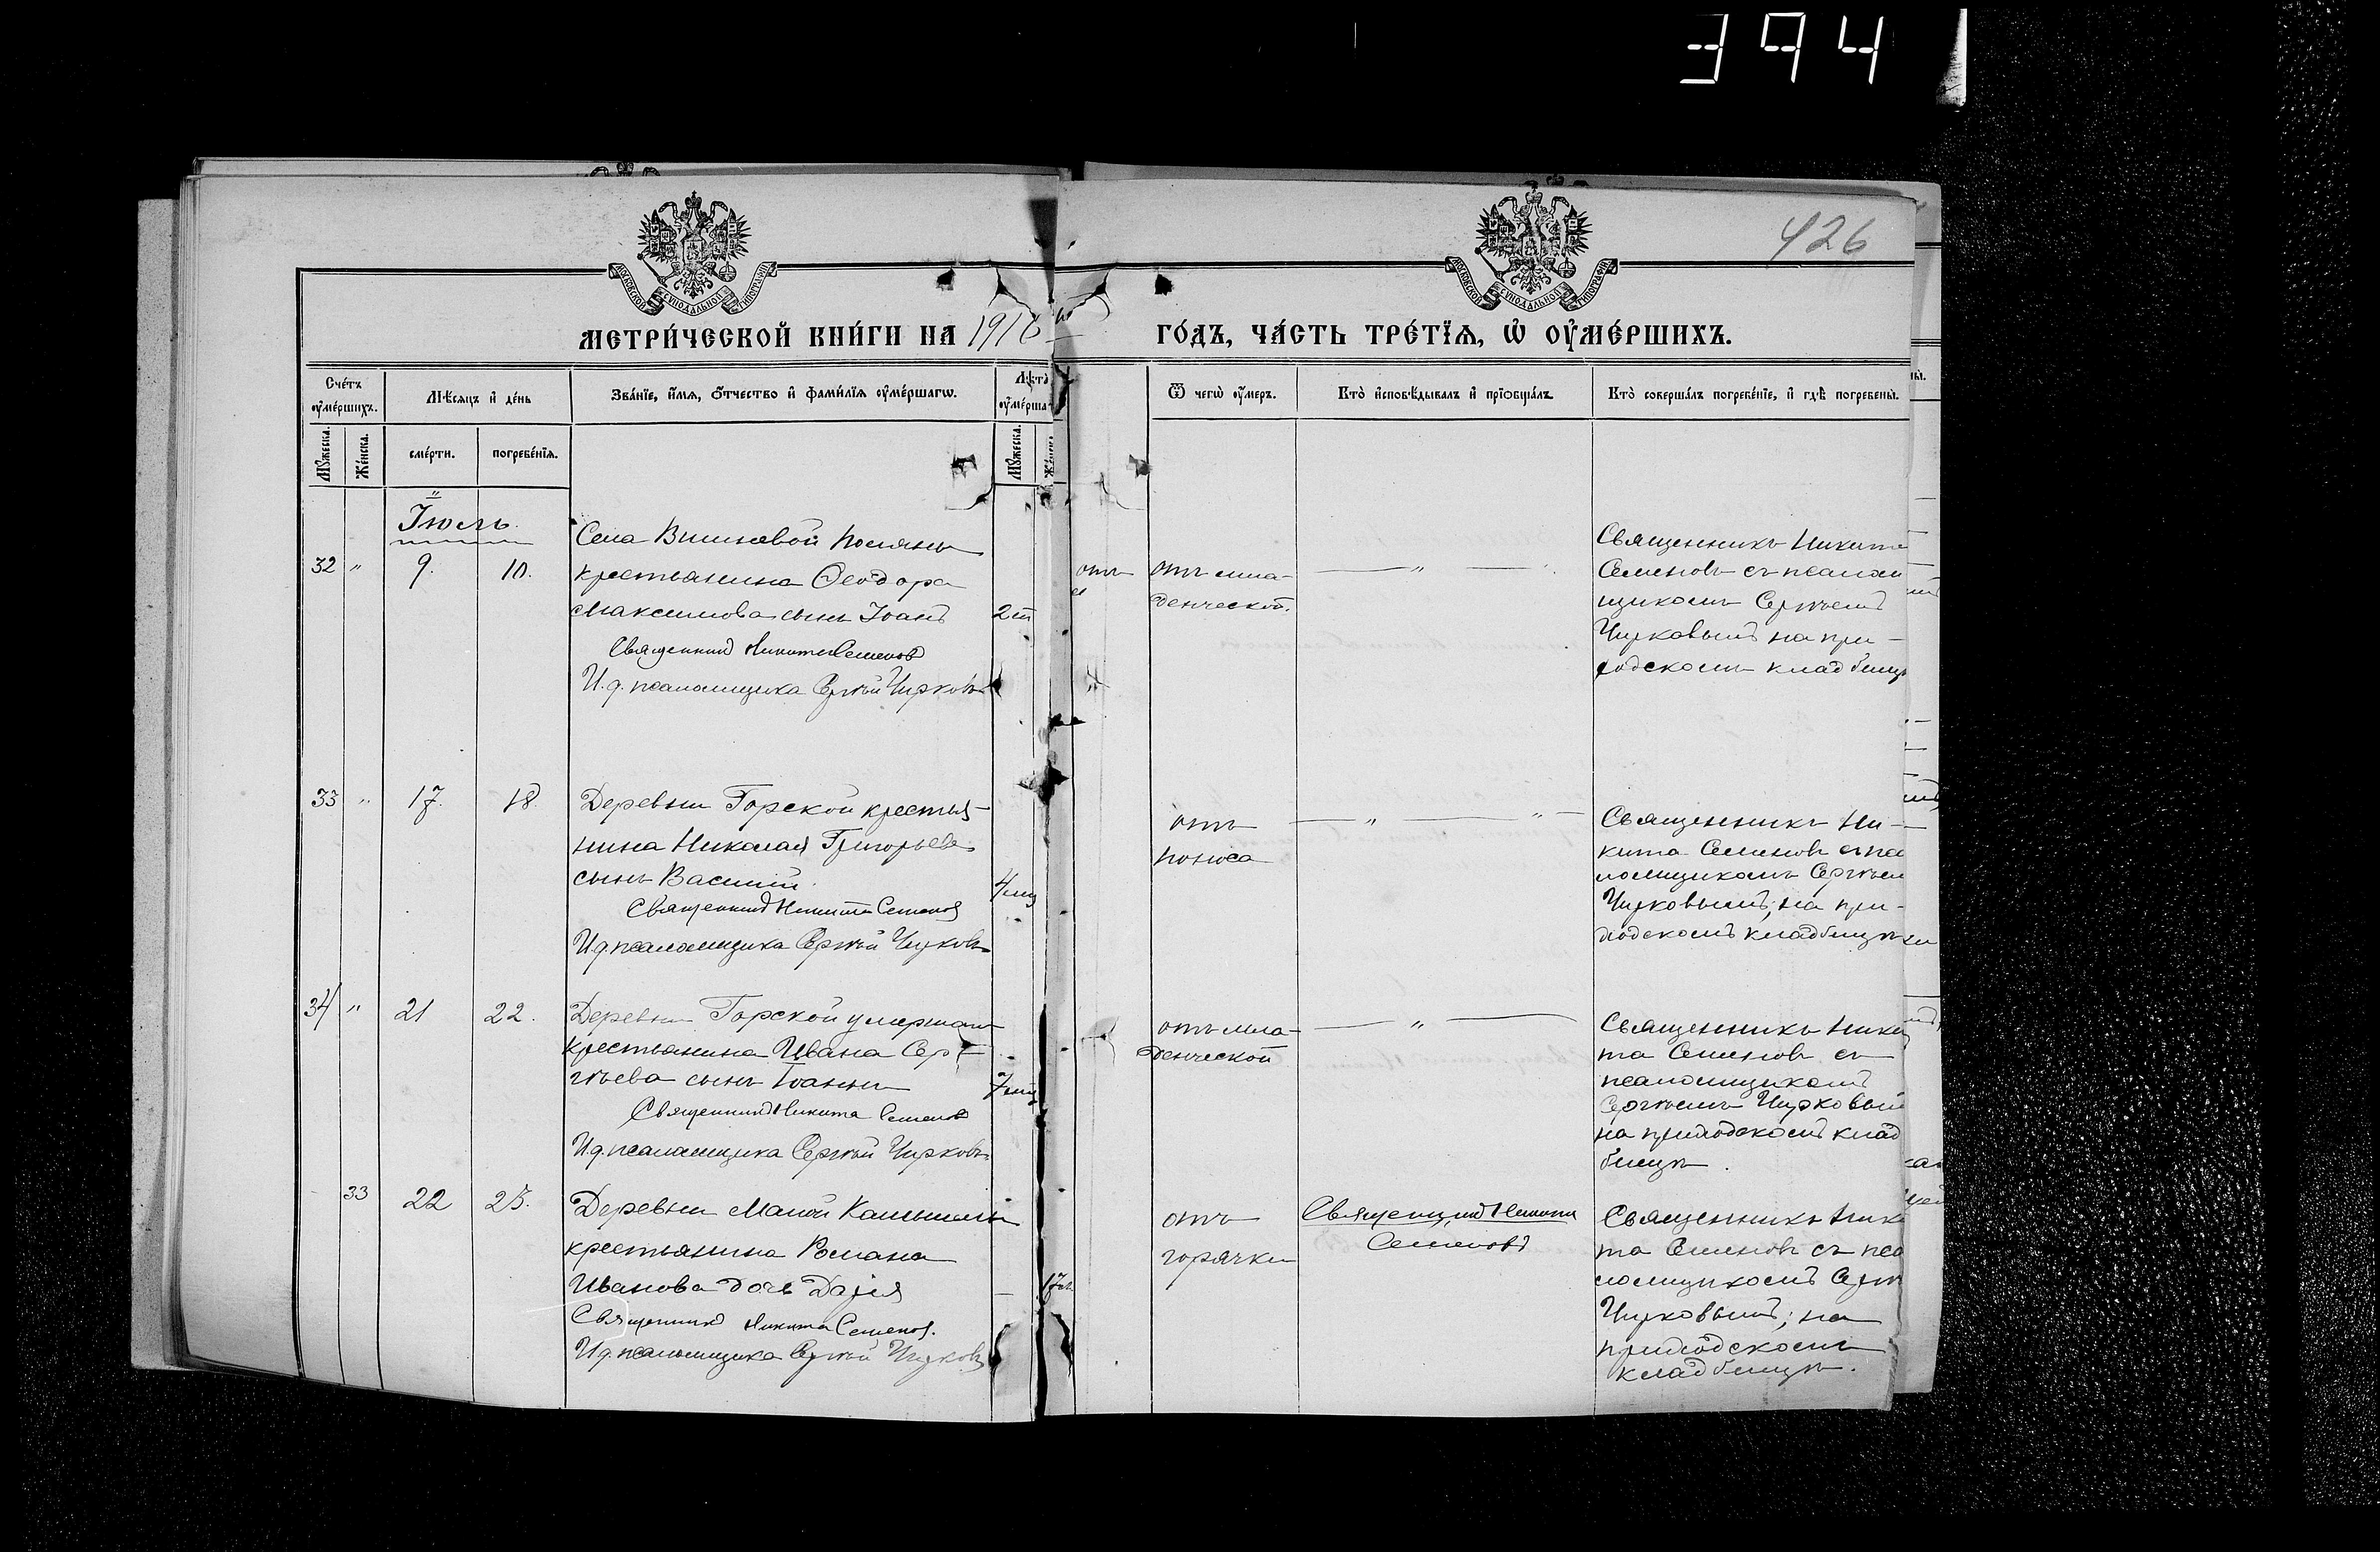 394
426
МОСКОВСКОЙ СѴНОДАЛЬНОЙ ТИПОГРАФІИ
МОСКОВСКОЙ СѴНОДАЛЬНОЙ ТИПОГРАФІИ
МЕТРИ́ЧЕСКОЙ КНИ́ГИ НА 1916 ГО́ДЪ, ЧА́СТЬ ТРЕ́ТЇѦ, Ѡ҆ ОУ҆МЕ́РШИХЪ.
Сче́тъ оу҆ме́ршихъ.
Мѣ́сяцъ и҆ де́нь
Зва́нїе, и҆́мѧ, ѻ҆́тчество и҆ фами́лїѧ оу҆ме́ршагѡ.
Лѣ́т
оу҆ме́рша
Ѿ чегѡ̀ оу҆́меръ.
Кто̀ и҆сповѣ́дывалъ и҆ прїобща́лъ.
Кто̀ соверша́лъ погребе́нїе, и҆ гдѣ̀ погребены̀.
Мꙋ́жеска.
Же́нска.
сме́рти.
погребе́нїѧ.
Мꙋ́жеска.
Іюль
32 " 9. 10.
Села Вишневой Поляны
крестьянина Ѳеодора
Максимова сынъ Іоанъ
Священникъ Никита Семеновъ
И. д. псаломщика Сергѣй Чирковъ
2
отъ мла-
денческой.
— " —
Священникъ Никита
Семеновъ съ псалом
щикомъ Сергѣемъ
Чирковымъ на при-
ходскомъ кладбищѣ
33 " 17. 18.
Деревни Горской крестья-
нина Николая Григорьева
сынъ Василій.
Священникъ Никита Семеновъ
И.д. псаломщика Сергѣй Чирковъ
4 мѣ
отъ
поноса
— " — " —
Священникъ Ни-
кита Семеновъ съ пса
ломщикомъ Сергѣем
Чирковымъ; на при-
ходскомъ кладбищѣ
34 " 21 22.
Деревни Горской умершаго
крестьянина Ивана Сер-
гѣева сынъ Іоаннъ
Священникъ Никита Семеновъ
И.д. псаломщика Сергѣй Чирковъ
7 мѣ
отъ мла-
денческой
— " —
Священникъ Ники
та Семеновъ съ
псаломщикомъ
Сергѣемъ Чирковым
на приходскомъ клад
бищѣ.
33 22 25.
Деревни Малой Камышлы
крестьянина Романа
Иванова дочь Дарія
Священникъ Никита Семеновъ.
И.д. псаломщика Сергѣй Чирковъ
— 17
отъ
горячки
Священникъ Никита
Семеновъ
Священникъ Ники
та Семеновъ съ пса
ломщикомъ Сергѣ
Чирковымъ; на
приходскомъ
кладбищѣ.